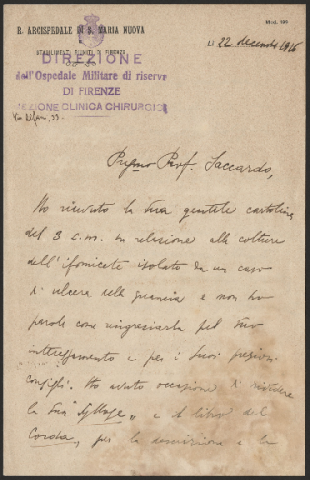 Mod. 199
R. ARCISPEDALE DI S. MARIA NUOVA
STABILIMENTI RIUNITI DI FIRENZE
LI 22 decembre 1916
DIREZIONE
dell'Ospedale Militare di riserva
DI FIRENZE
SEZIONE CLINICA CHIRURGICA
Via Alfani, 33.
Pregmo Prof. Saccardo,
Ho ricevuto la Sua gentile cartolina
del 3 c.m. in relazione alle colture
dell'ifomicete isolato da un caso
d'ulcera della guancia e non ho
parole come ringraziarla pel Suo
interessamento e per i Suoi preziosi
consigli. Ho avuto occasione di rivedere
la Sua "Sylloge" e il libro del
Corda, per la descrizione e la